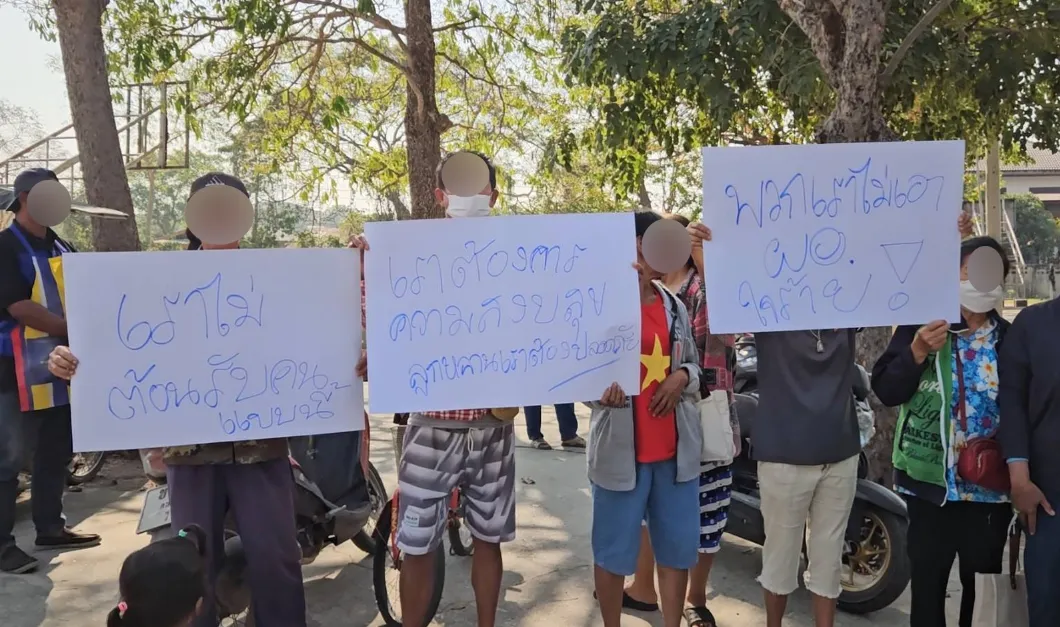 เราไม่
ต้อนรับคน
แบบนี้
เราต้องการ
ความสงบสุข
ลูกหลานเราต้องปลอดภัย
พวกเราไม่เอา
ผอ.
ใจร้าย !